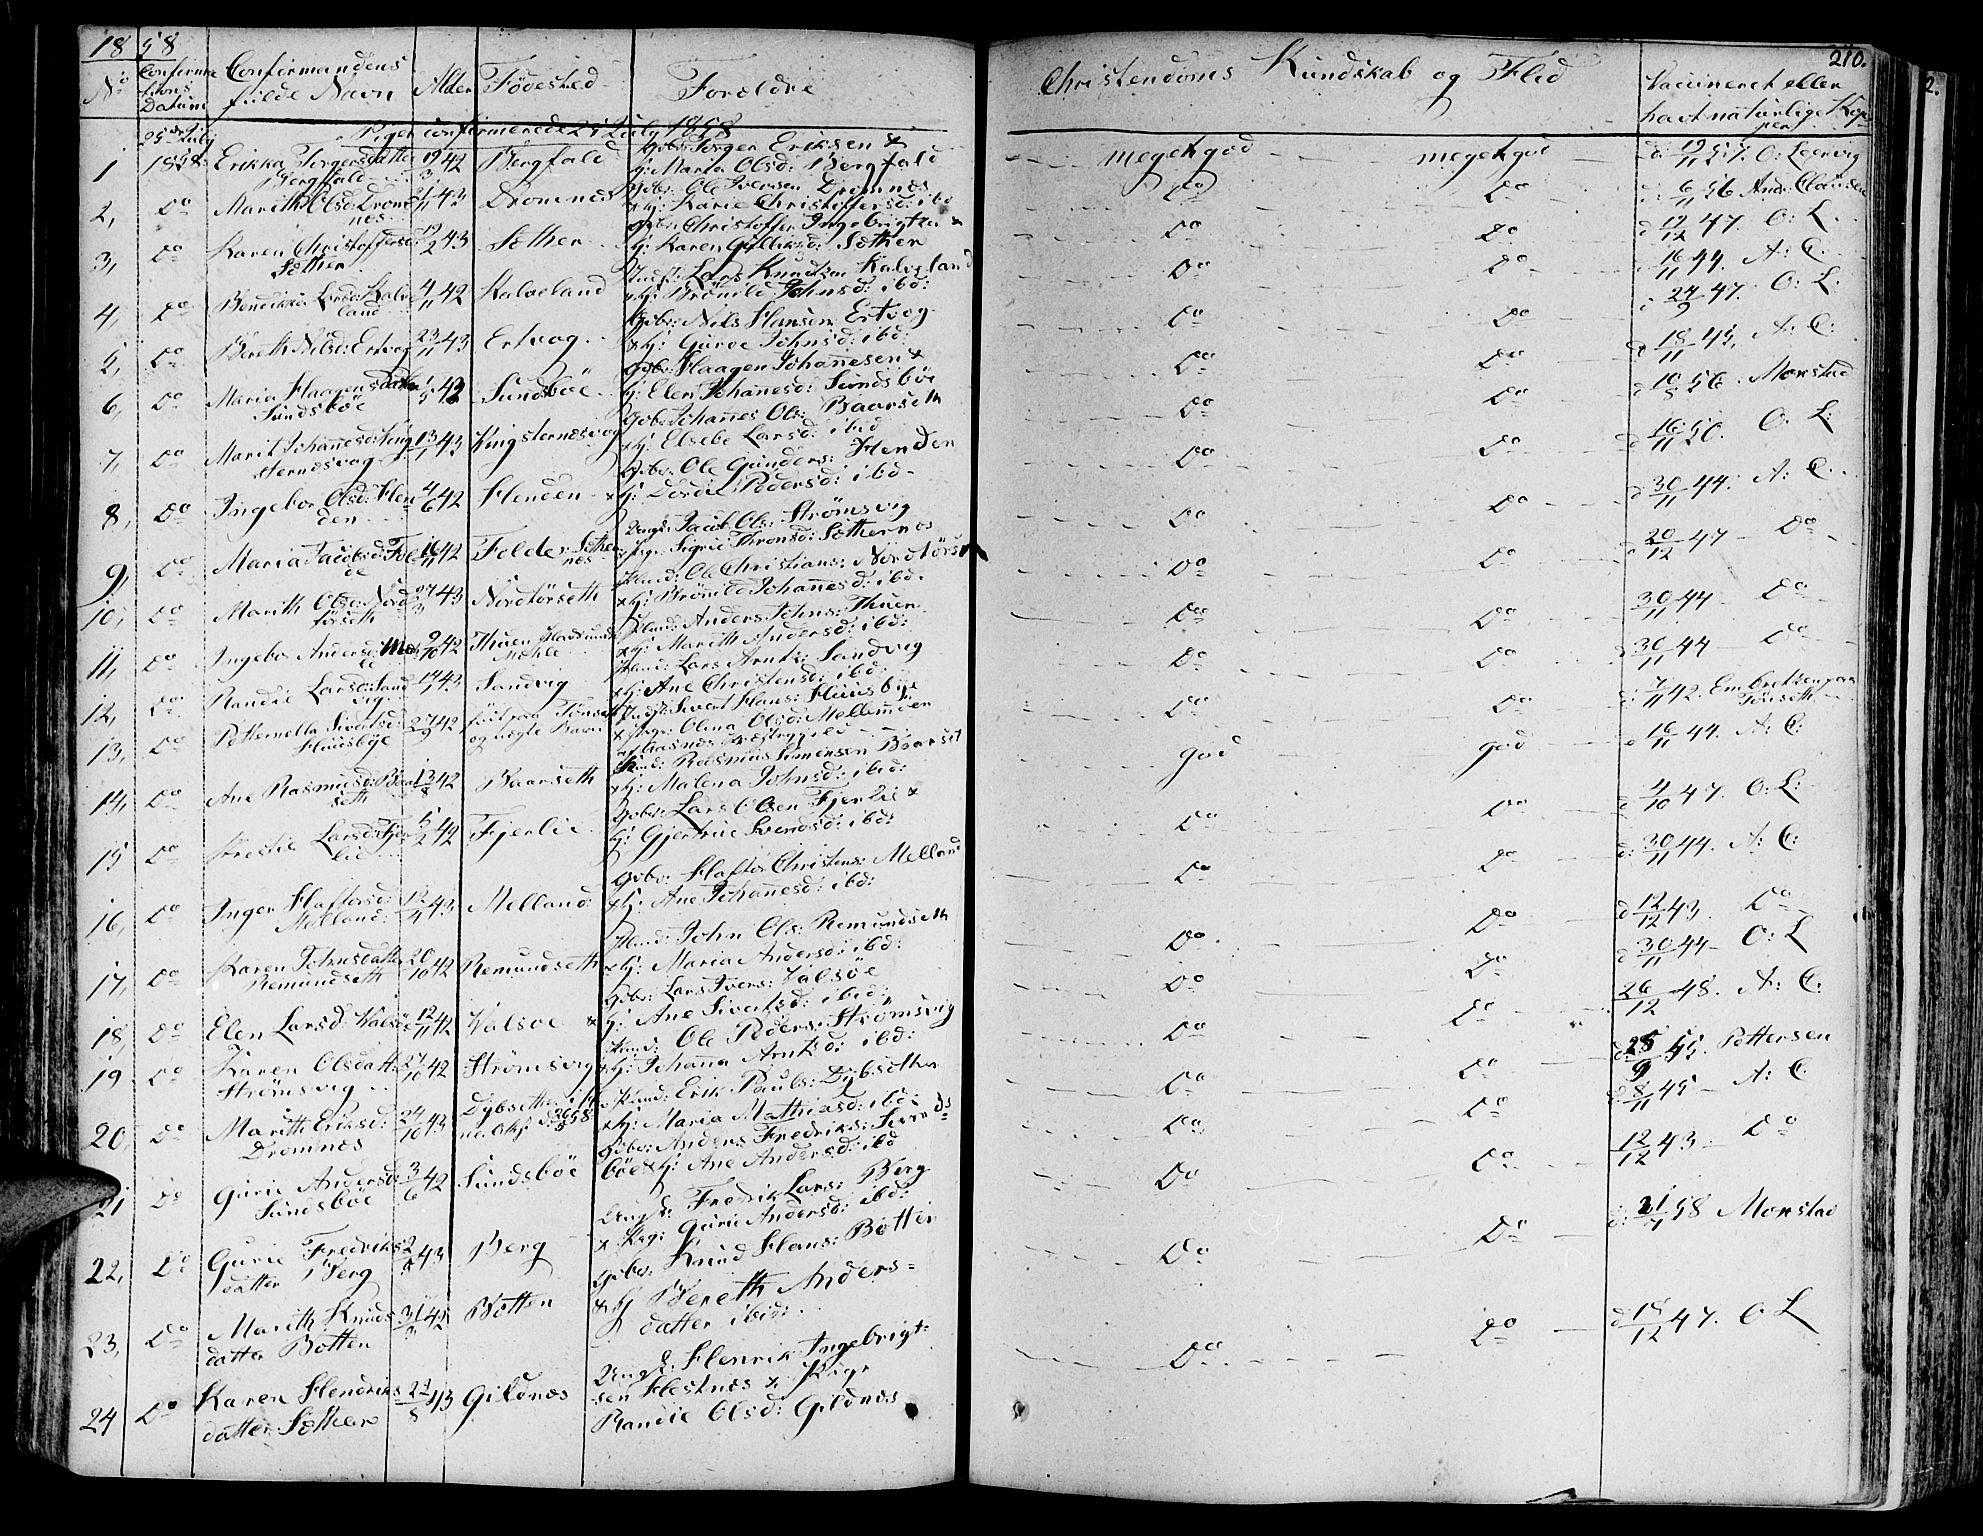 1858
210.
No Confirmations Datum
Confirmandens fulde Navn
Alder
Fødested
Forældre
Christendoms Kundskab og Flid
Vaccineret eller havt naturlige Kopper
Piger confirmerede 25 July 1858
1 25de July 1858: Erikka Torgersdatter Bergfald 19/3 42 Bergfald Gbr: Torger Eriksen & Hj: Maria Olsd: Bergfald meget god meget god d: 19/11 57. O: Leervig
2, Do Marith Olsd: Dromnes 21/11 43 Dromnes Gbr: Ole Iversen Dromnes & Hj: Karie Christoffersd: ibd Do Do d: 6/11 56 And: Clausen
3, Do Karen Christoffersd: Sæther 19/2 43 Sæther Gbr: Christoffer Ingebrigtsen & Hj: Karen Gulliksd: Sæther Do Do d 17/12 47. O: L.
4, Do Bendikka Larsd: Kalveland 4/11 42 Kalveland Indst: Lars Knudsen Kalveland & Hj: Brønild Johnsd: ibd: Do Do d 16/11 44. A: C.
5, Do Bereth Nilsd: Ertvog 23/11 43 Ertvog Gbr: Nils Hansen Ertvog & Hj: Guroe Johnsd: ibd: Do Do d 24/9 47. O: L:
6, Do Maria Haagensdatter Sundsbøe 1/5 42 Sundsbøe Gbr: Haagen Johannesen & Hj: Elen Johanesd: Sundsbøe Do Do d 18/11 43, A: C:
7, Do Marit Johannesd: Kingsternesvog 13/1 43 Kingsternesvog Gbr: Johannes Ols: Baarseth & Hj: Elsebe Larsd: ibid Do Do d 10/8 56. Monstad
8, Do Ingebor Olsd: Henden 4/6 42 Henden Gbr: Ole Gunders: Henden & Hj: Dordi Pedersd: ibd Do Do d 16/11 50. O: L:
9, Do Maria Jacobsd: Folde 16/11 42 Folde: Sæthernes Ungk: Jacob Ols: Strømsvig & Pige: Sigrid Thronsd: Sæthernes Do Do d 30/11 44. A: C.
10, Do Marith Olsd: Nordtørseth 27/3 43 Nordtørseth Huusmd: Ole Christians: Nordtørs & Hj: Brønild Johanesd: ibd. Do Do d 20/12 47 Do
11, Do Ingebor Andersd: 9/10 42 Thuen Huusmd: Anders Johns: Thuen & Hj: Marith Andersd: ibd: Do Do 30/11 44 Do
12, Do Randie Larsd: Sandvig 14/1 43 Sandvig Huusmd: Lars Arntz: Sandvig & Hj: Ane Christensd: ibd: Do Do d 30/11 44 Do
13, Do Petternella Sivertsd: Huusbye 27/9 42 og uægte Barn Indst: Sivert Hans: Huusbye & Pige: Olina Olsd: Mellemden Do Do d: 7/11 42. Embretsen paa Tørseth
14, Do Ane Rasmusd: Baarseth 13/8 42 Baarseth Huusmd: Rasmus Simensen Baarset & Hj: Malena Johnsd: ibid: god god d 16/11 44. A: C:
15 Do Krestie Larsd: Fjerlie 5/2 42 Fjerlie Gbr: Lars Olsen Fjerlie & Hj: Gjertrue Svendsd: ibd: Do Do d 4/10 47. O: L:
16, Do Inger Haftorsd: Melland: 12/4 43 Melland Gbr: Haftor Christens: Melland & Hj: Ane Johanesd: ibd: Do Do d: 30/11 44. A: C:
17, Do Karen Johnsdatter Remundseth 20/10 42 Remundseth Huusmd: John Ols: Remundseth & Hj: Maria Andersd: ibd: Do Do d 12/12 43. Do
18, Do Elen Larsd: Valsøe 12/11 42 Valsøe Gbr: Lars Ivers: Valsøe & Hj: Ane Sivertsd: ibid: Do Do d 30/11 44 O: L
19 Do Karen Olsdatt: Strømsvig 27/10 42 Strømsvig Huusmd: Ole Peders: Strømsvig & Hj: Johanna Arntsd: ibd: Do Do 26/12 48. A: C:
20, Do Marith Eriksd: Dromnes 24/10 43 Dybsæther Huusmd: Erik Pauls: Dybsæther & Hj: Maria Mathiasd: ibd: Do Do d: 25/9 45. Pettersen
21 Do Gurie Andersd: Sundsbøe 3/6 42 Sundsbøe Gbr: Anders Fredriks: Sundsbøe & Hj: Ane Andersd: ibd Do Do d 8/11 45 A: C.
22, Do Gurie Fredriksdatter Berg 2/9 43 Berg Ungk: Fredrik Lars: Berg & Pige: Gurie Andersd: ibd: Do Do 12/12 43 Do
23, Do Marith Knudsdatter Botten 31/3 42 Botten Gbr: Knud Hans: Botten & Hj Bereth Andersdatter ibid: Do Do d: 21/7 58 Monstad
24 Do Karen Hendriksdatter Sæther 24/8 43 Gildnes Ungk: Henrik Ingebrigtsen Hestnes & Pige Randie Olsd: Gildnes Do Do d 18/12 47. O L